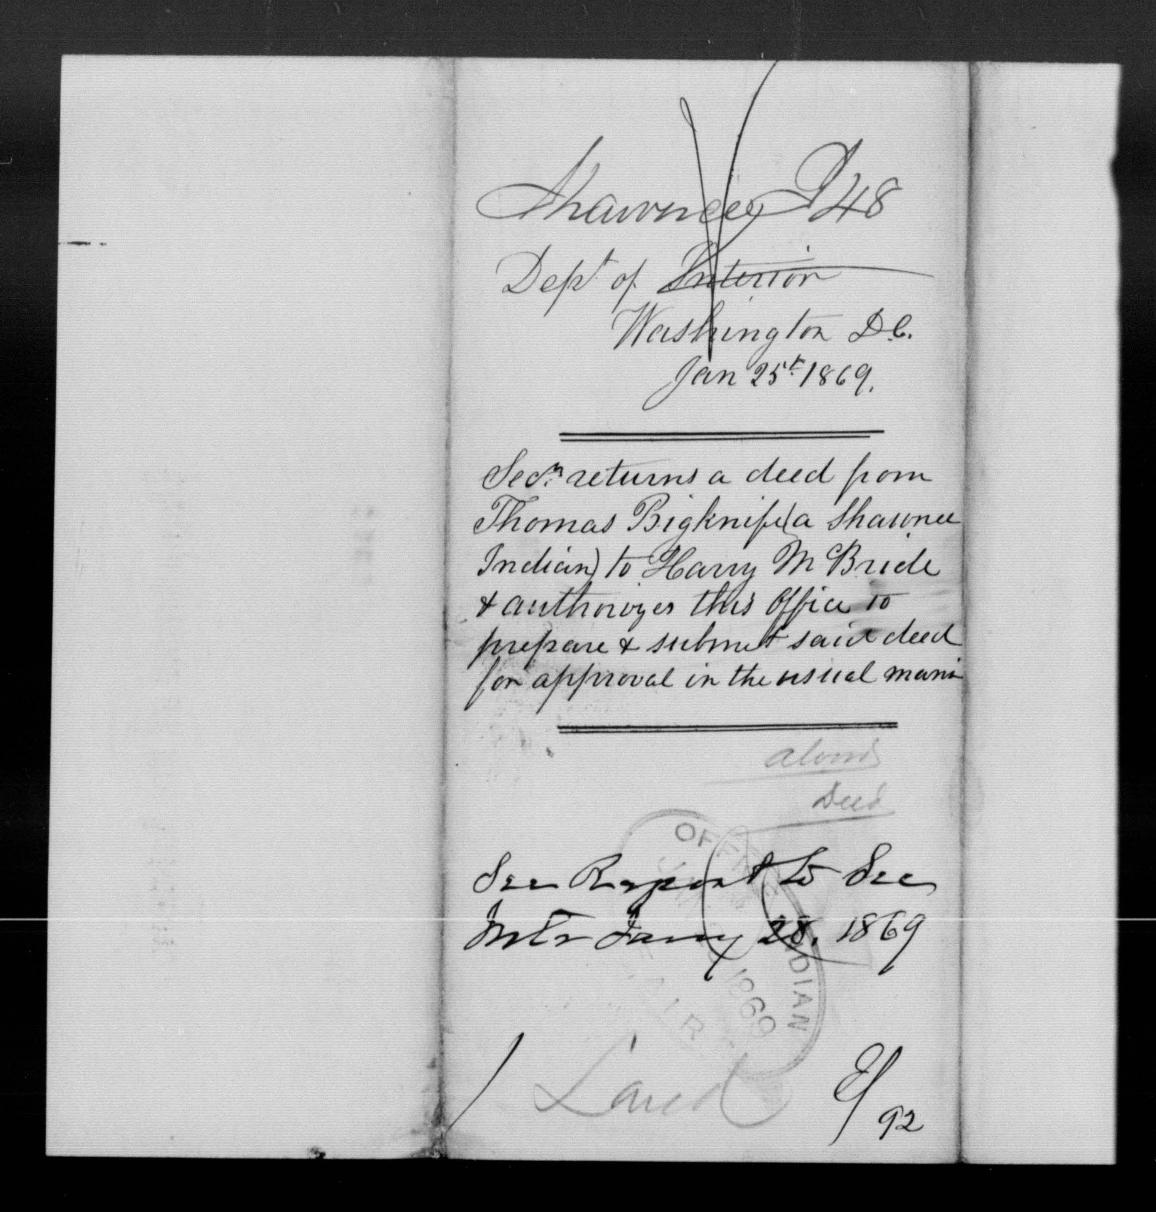 Shawnee I 48
Dept of Interior
Washington D.C.
Jan 25t 1869.
Secy returns a deed from
Thomas Bigknife (a Shawnee
Indian) to Harry McBride
& authorizes this Office to
prepare & submit said deed
for approval in the usual mann
Deed
See Report to Sec
Intr Jany 28. 1869
OFFICE INDIAN
1869
Land
92